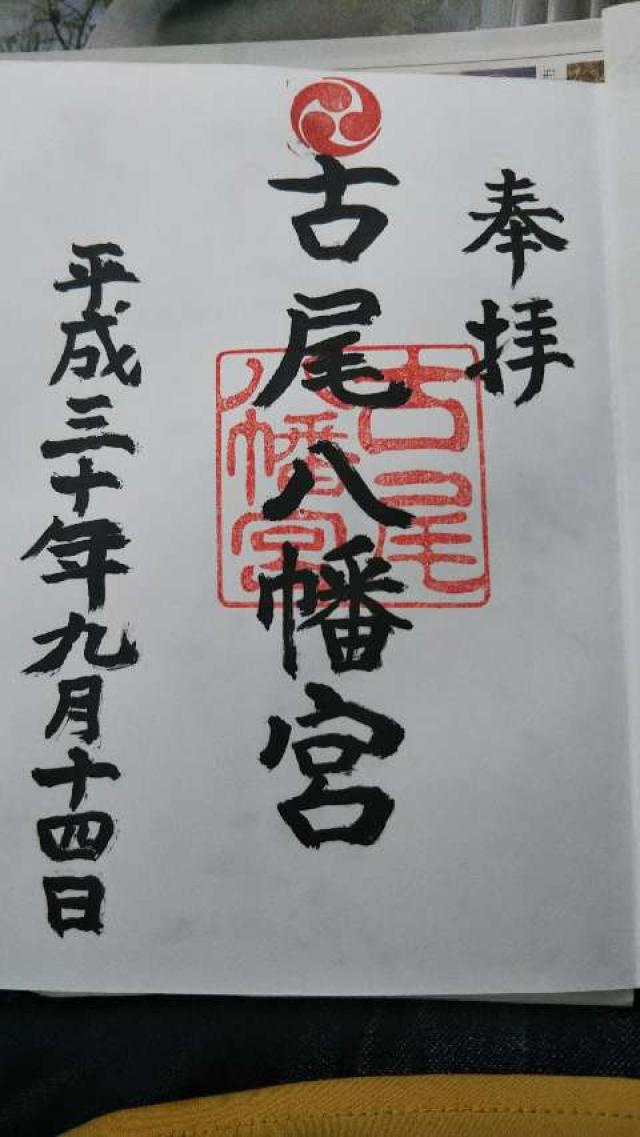 奉拝
古尾八幡宮
古尾
八幡宮
平成三十年九月十四日